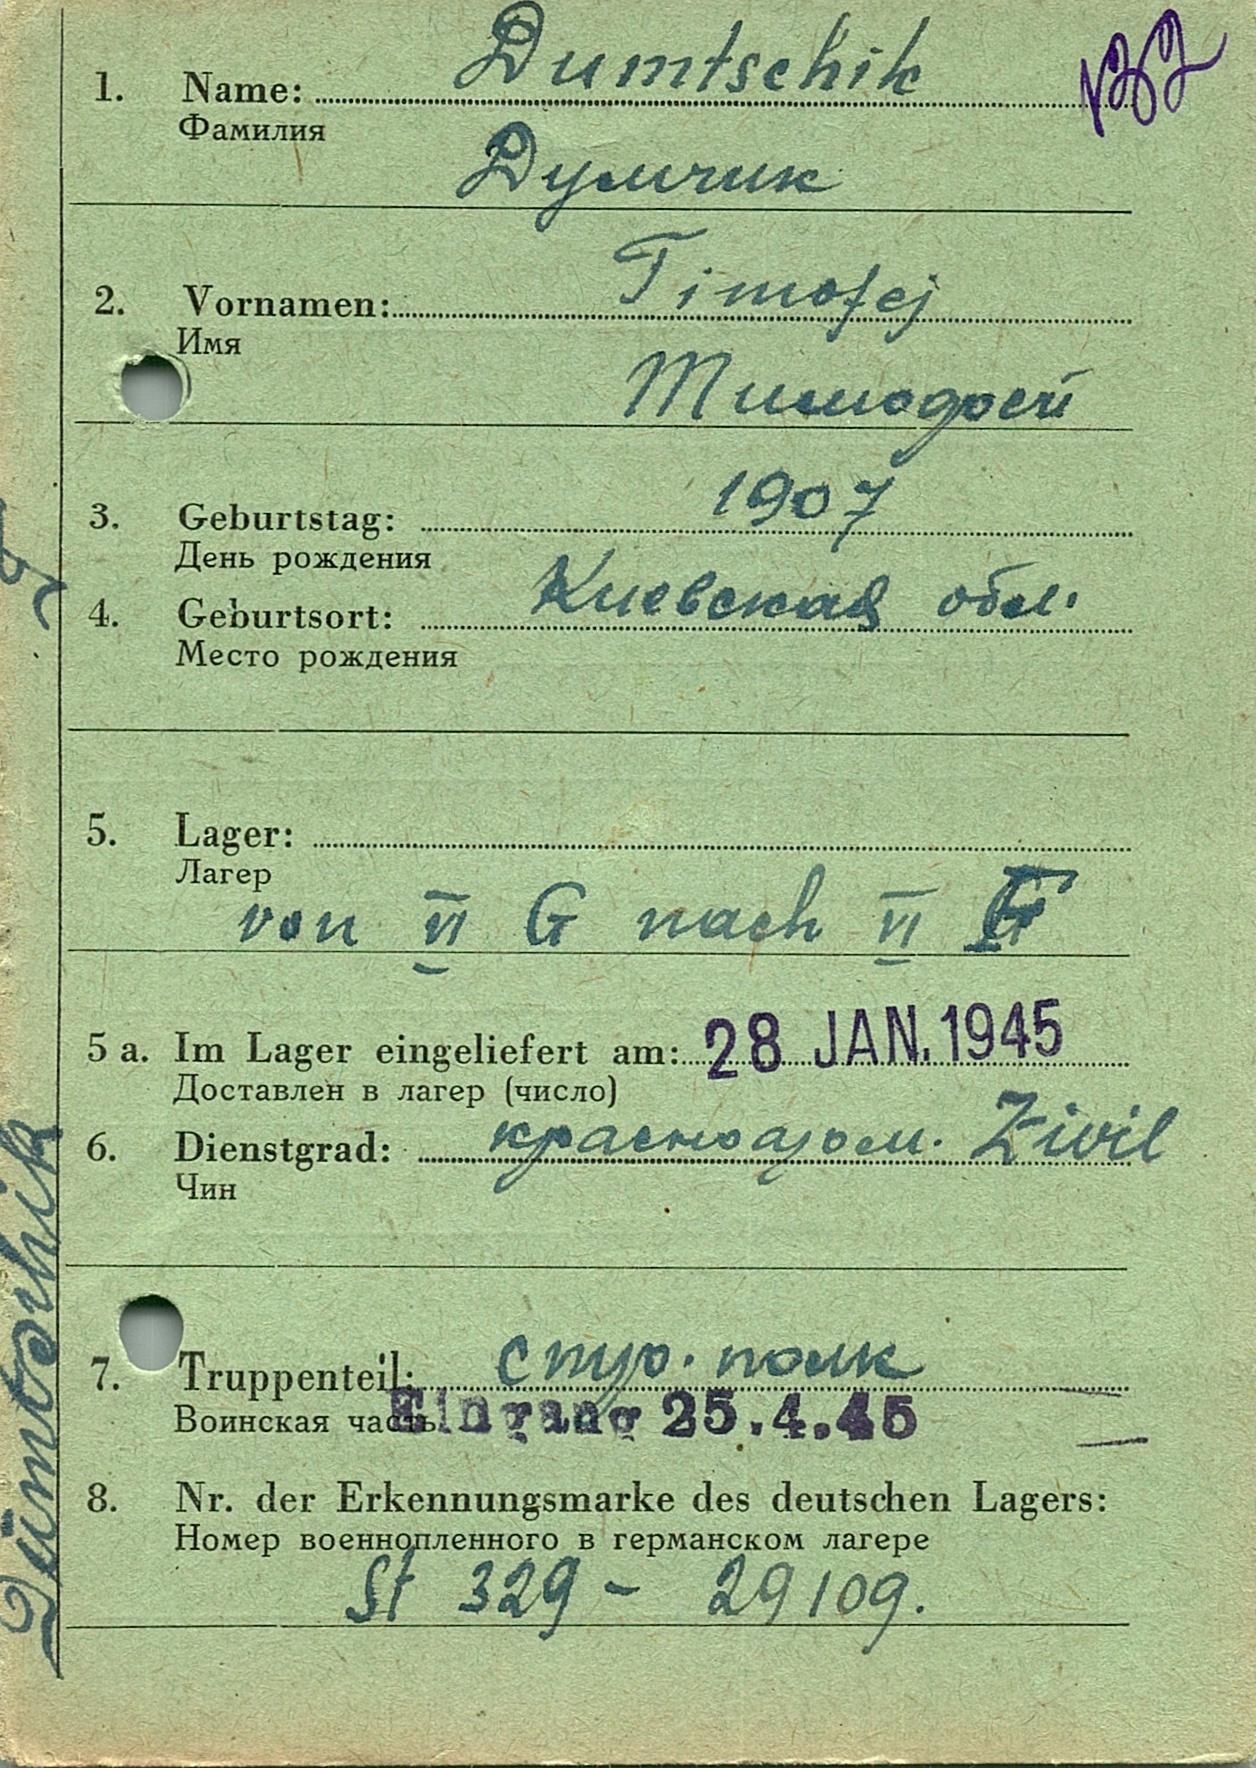 1. Name: Dumtschik
Фамилия
Думчик
2. Vornamen: Timofej
Имя
Тимофей
3. Geburtstag: 1907
День рождения
4. Geburtsort: Киевская обл.
Место рождения
5. Lager:
Лагер
von VI G nach VI F
5 a. Im Lager eingeliefert am: 28 JAN. 1945
Доставлен в лагер (число)
6. Dienstgrad: красноарм. Zivil
Чин
7. Truppenteil: стр. полк
Воинская часть Eingang 25.4.45
8. Nr. der Erkennungsmarke des deutschen Lagers:
Номер военнопленного в германском лагере
St 329 - 29109.
Dumtschik